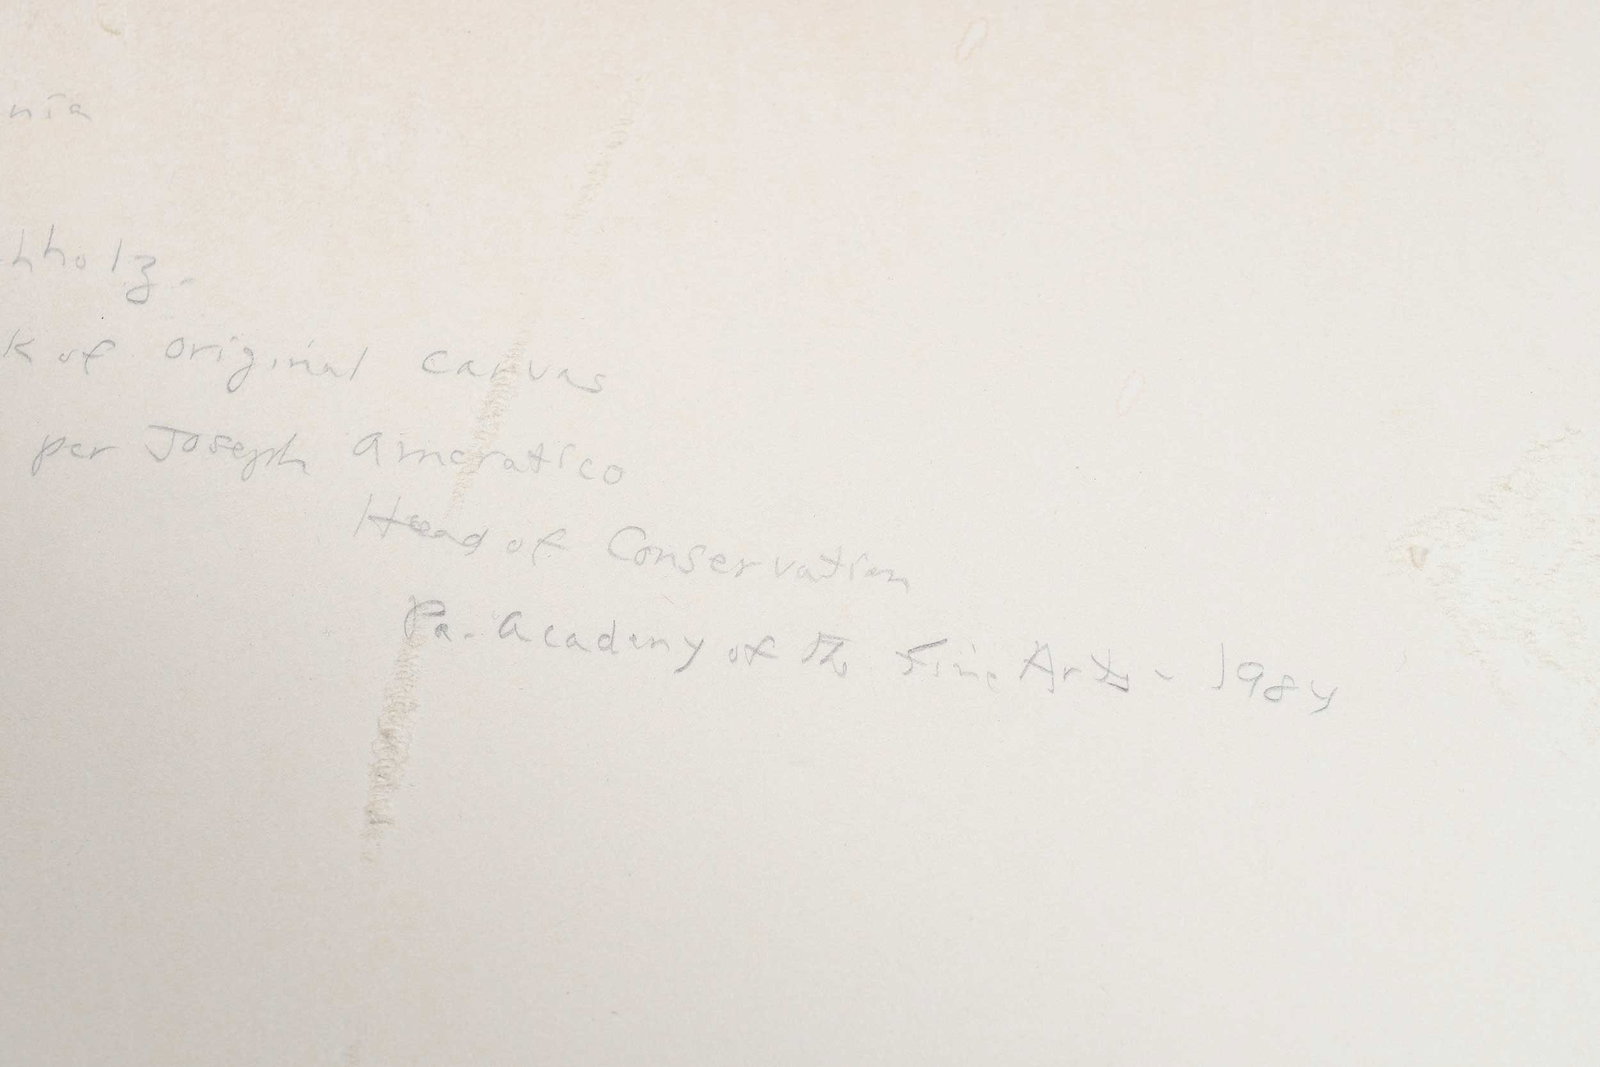 nia
hholz.
k of original canvas
per Joseph Amoratico
Head of Conservation
Pa. Academy of the Fine Arts - 1984